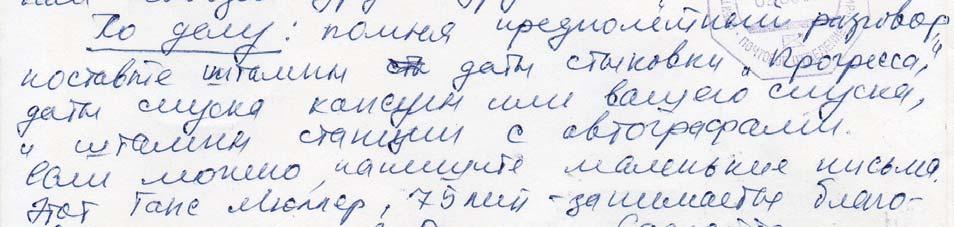 По делу: помня предполётный разговор,
поставьте штампы даты стыковки „Прогресса",
даты спуска капсулы или вашего спуска,
и штампы станции с автографами.
Если можно, напишите маленькие письма.
Этот Ганс Мюллер, 75 лет - занимается благо-